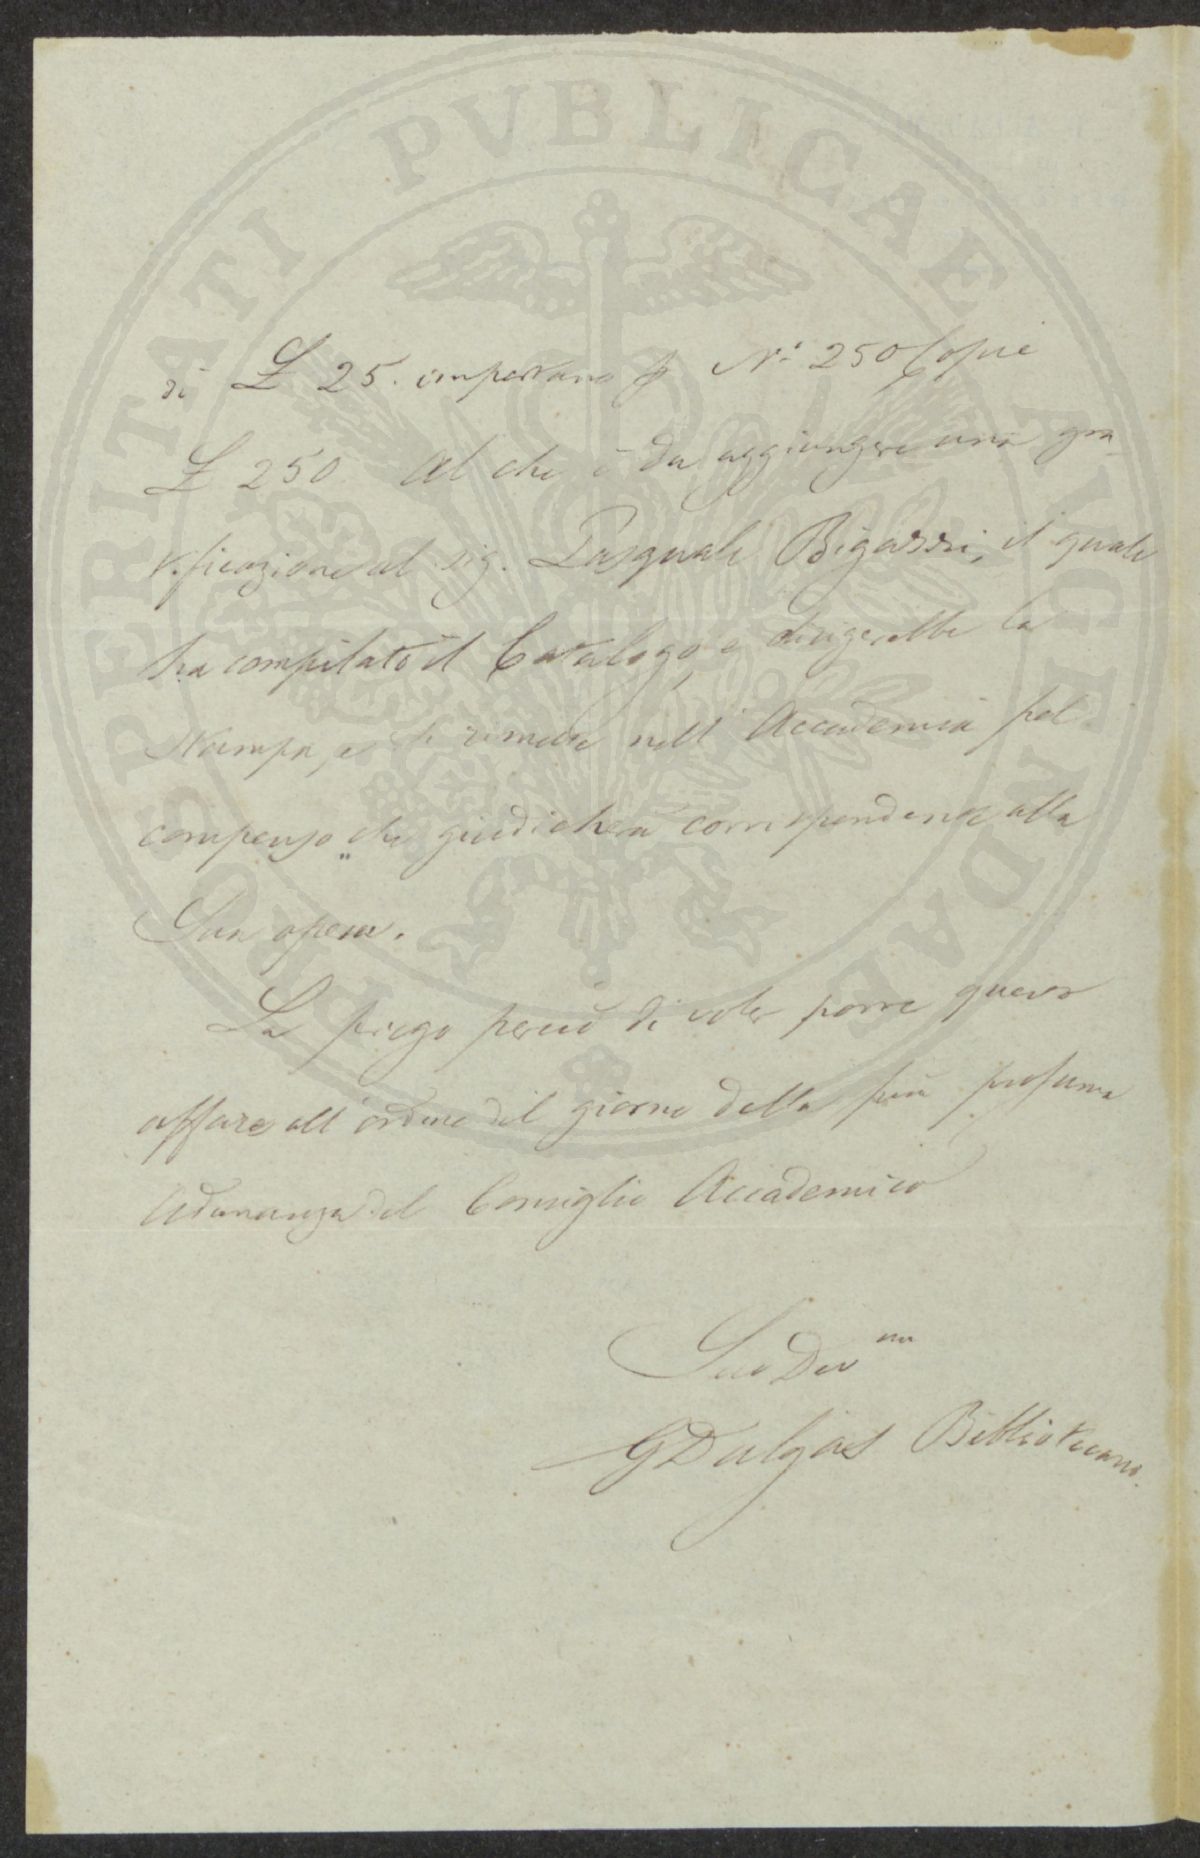 PROSPERITATI PVBLICAE AVGENDAE
di £ 25. importano p N.° 250 Copie
£ 250 Al che è da aggiungere una gra-
tificazione al sig. Pasquale Bigazzi, il quale
ha compilato il Catalogo, e dirigerebbe la
Stampa, e si rimette nell' Accademia pel
compenso che giudicherà corrispondente alla
Sua opera.
La prego perciò di voler porre questo
affare all' ordine del giorno della più prossima
Adunanza del Consiglio Accademico
Suo Dev mo
G Dalgas Bibliotecario.